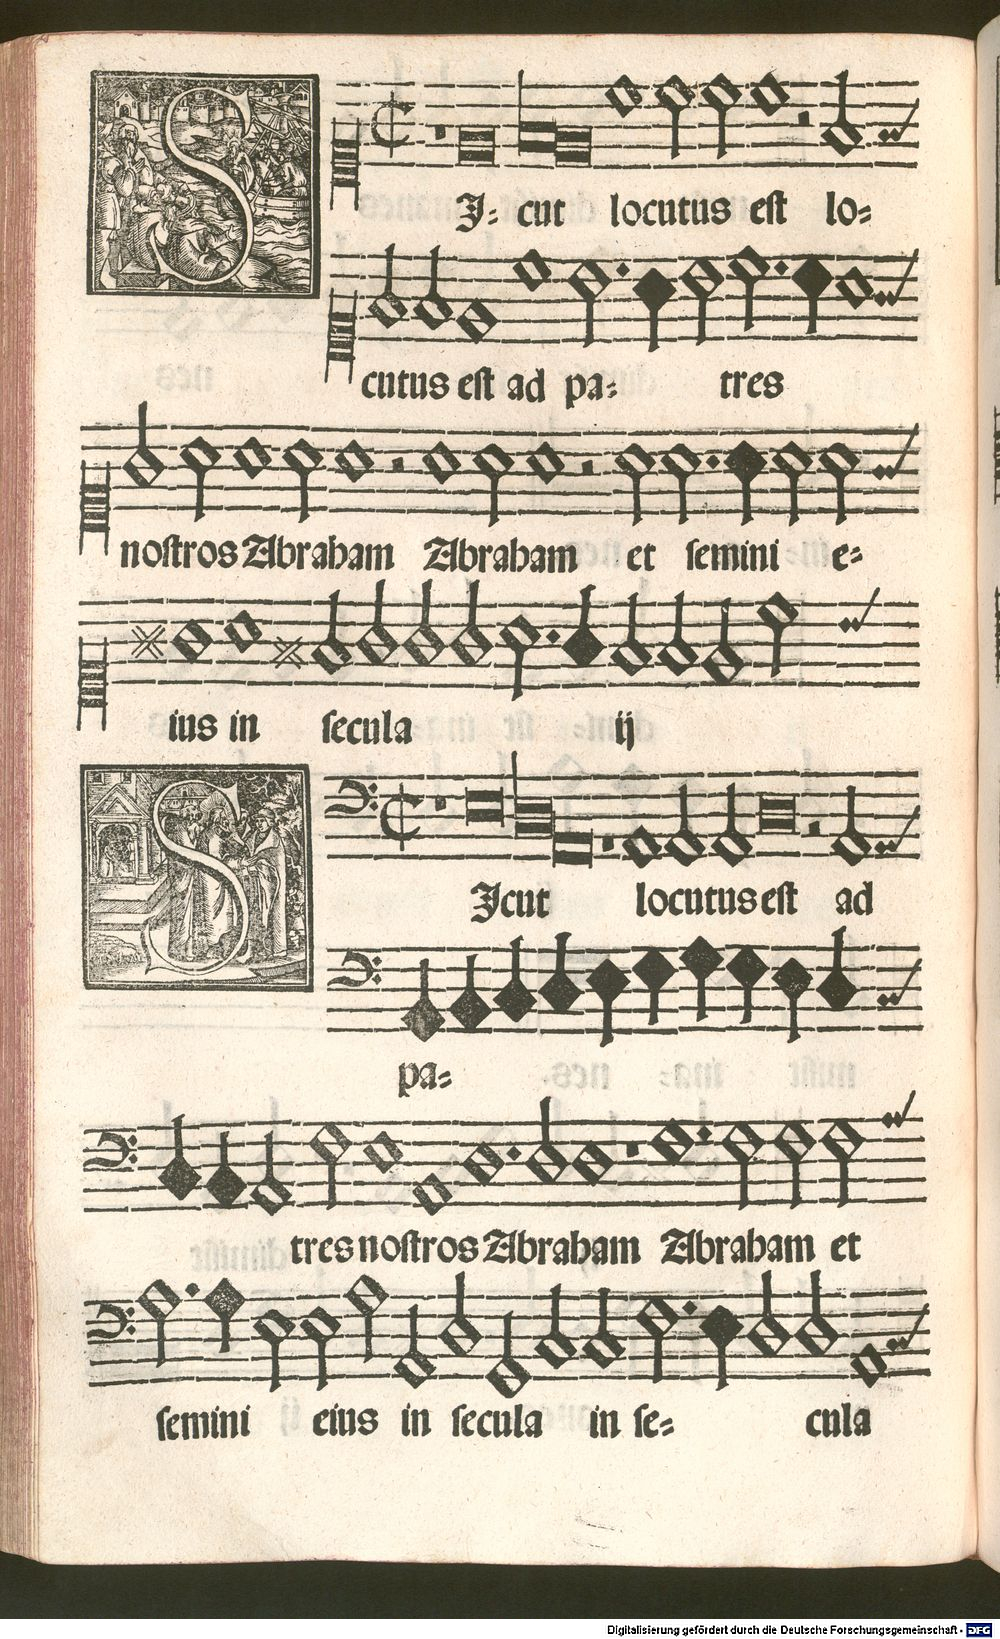 SJ= cut locutus est lo=
cutus est ad pa= tres
nostros Abraham Abraham et semini e=
ius in secula ij
SJcut locutus est ad
pa=
tres nostros Abraham Abraham et
semini eius in secula in se= cula
Digitalisierung gefördert durch die Deutsche Forschungsgemeinschaft - DFG